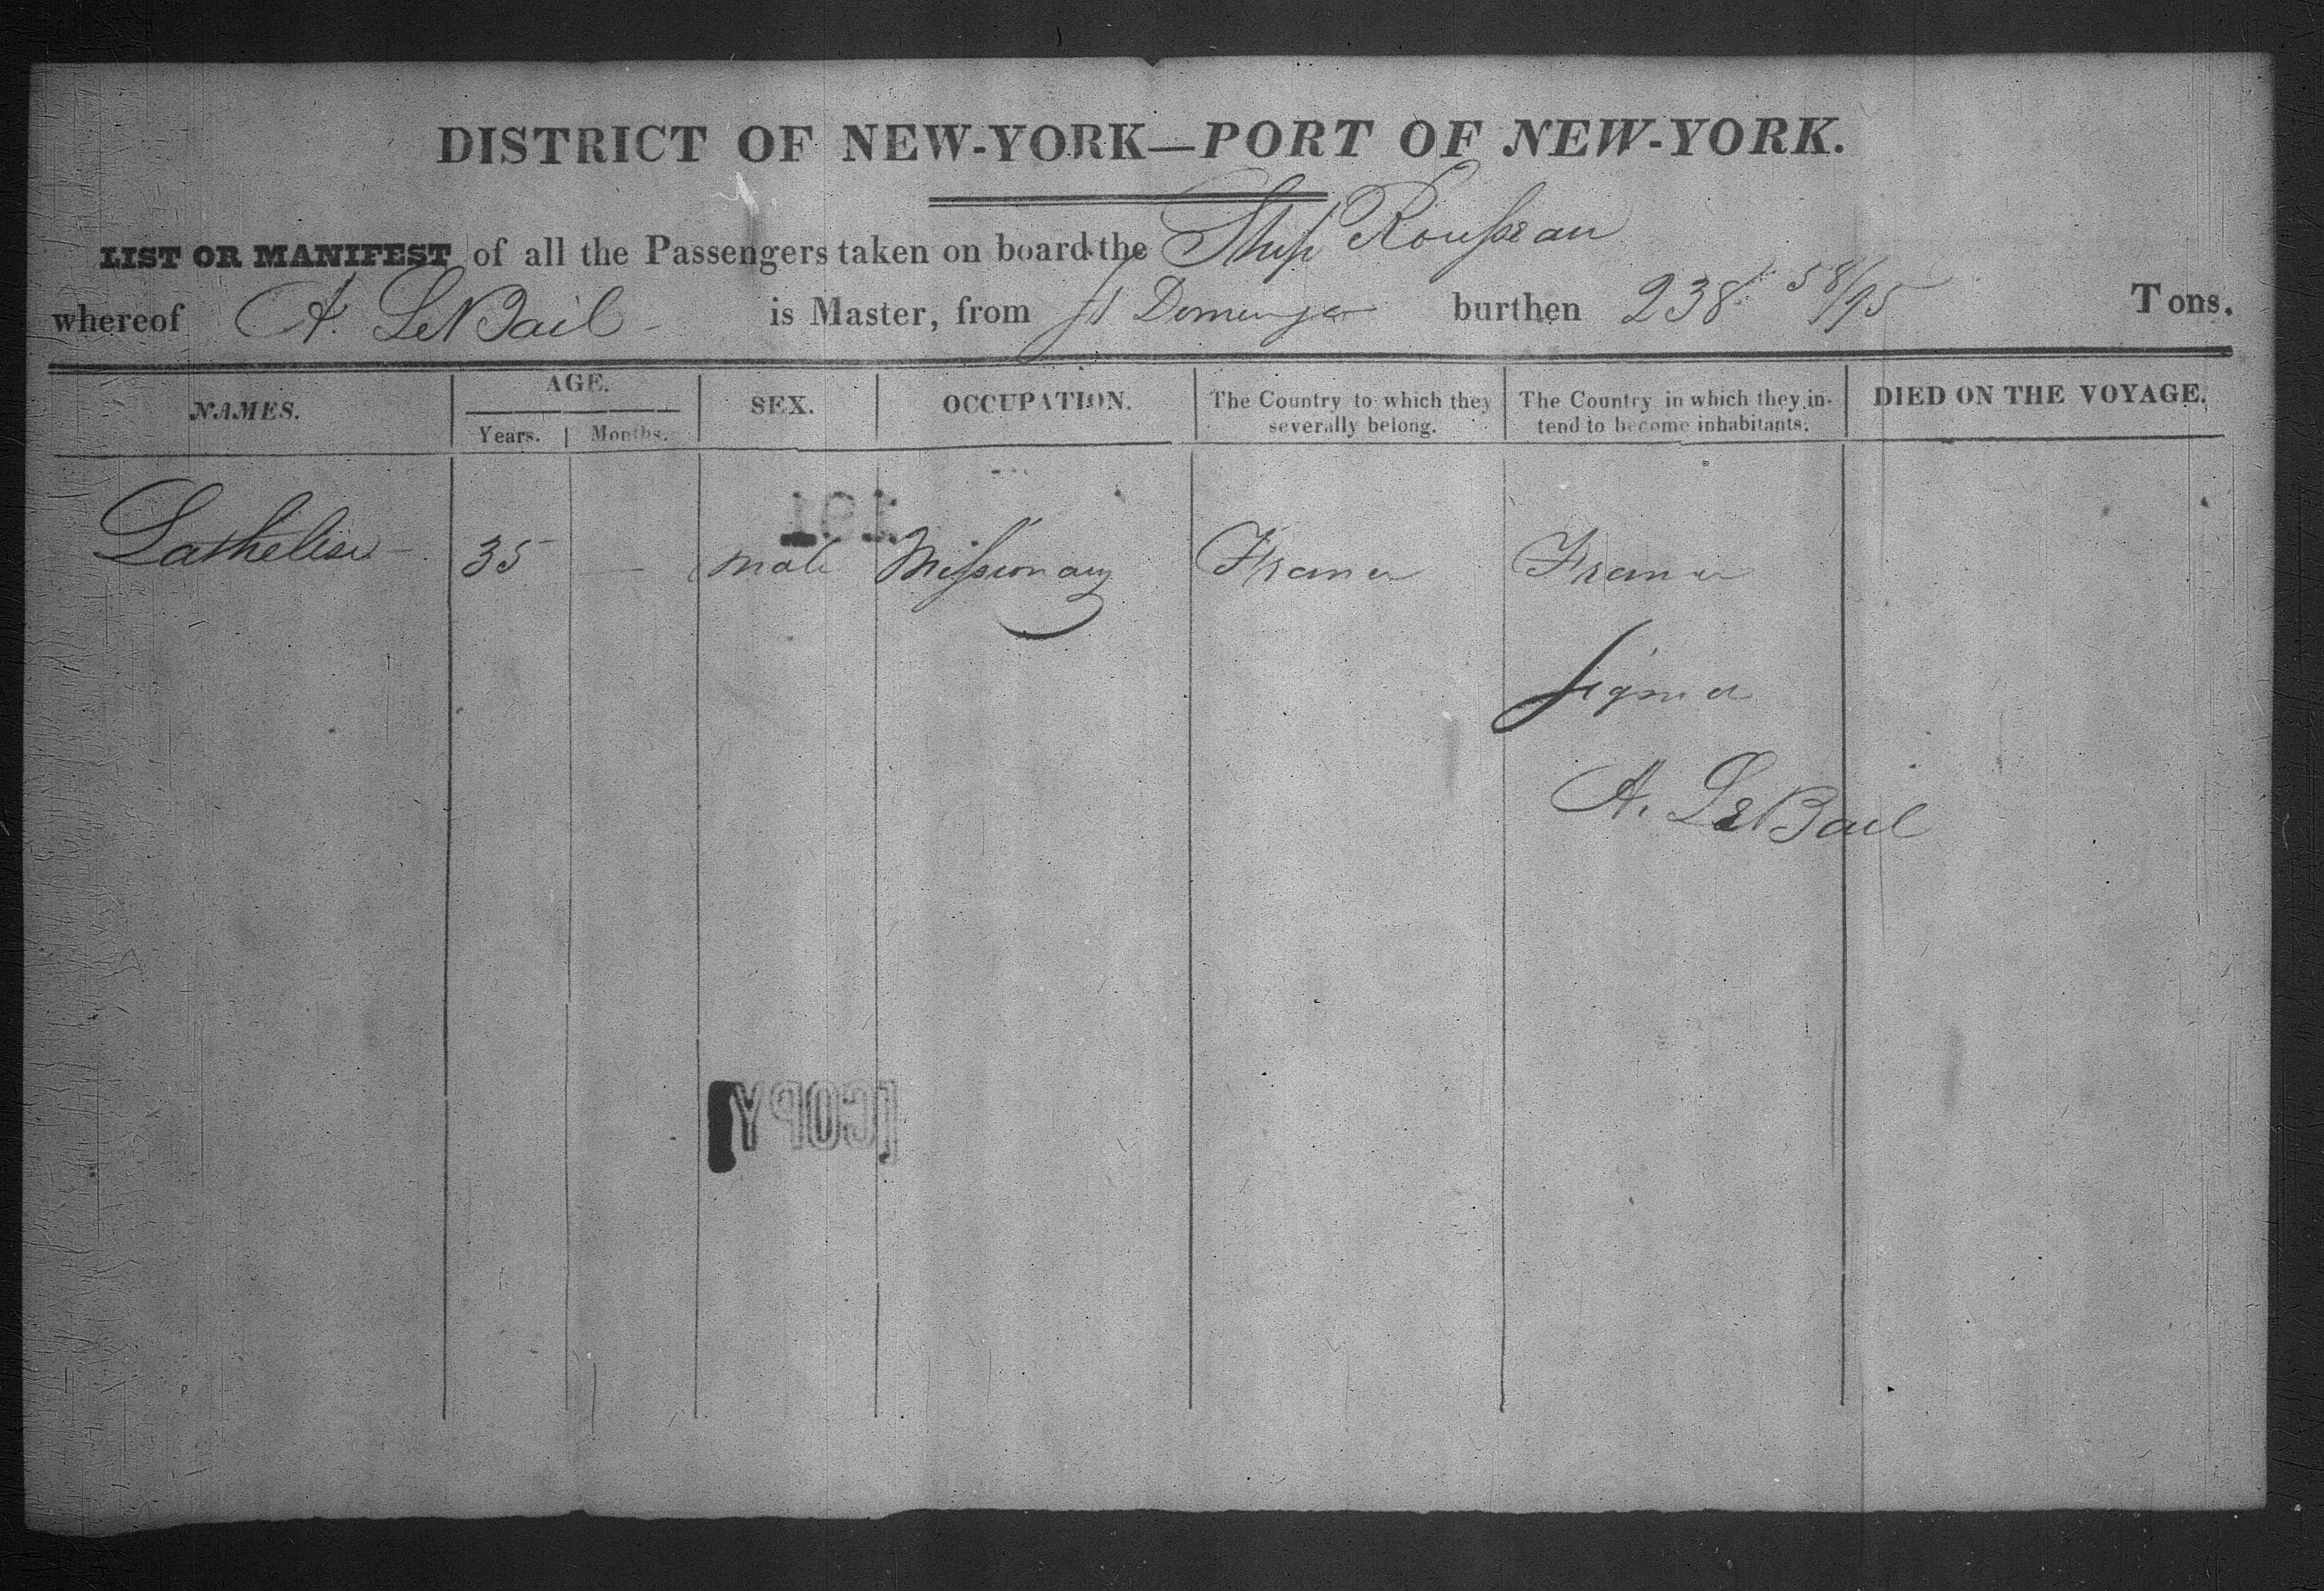 DISTRICT OF NEW-YORK—PORT OF NEW-YORK.
LIST OR MANIFEST of all the Passengers taken on board the Ship Rousseau
whereof A. LeBail - is Master, from St Domingo burthen 238 58/95 Tons.
NAMES. AGE. Years. Months. SEX. OCCUPATION. The Country to which they severally belong. The Country in which they intend to become inhabitants. DIED ON THE VOYAGE.
191
35 — male Missionary France France
Signed
A. LeBail
[COPY